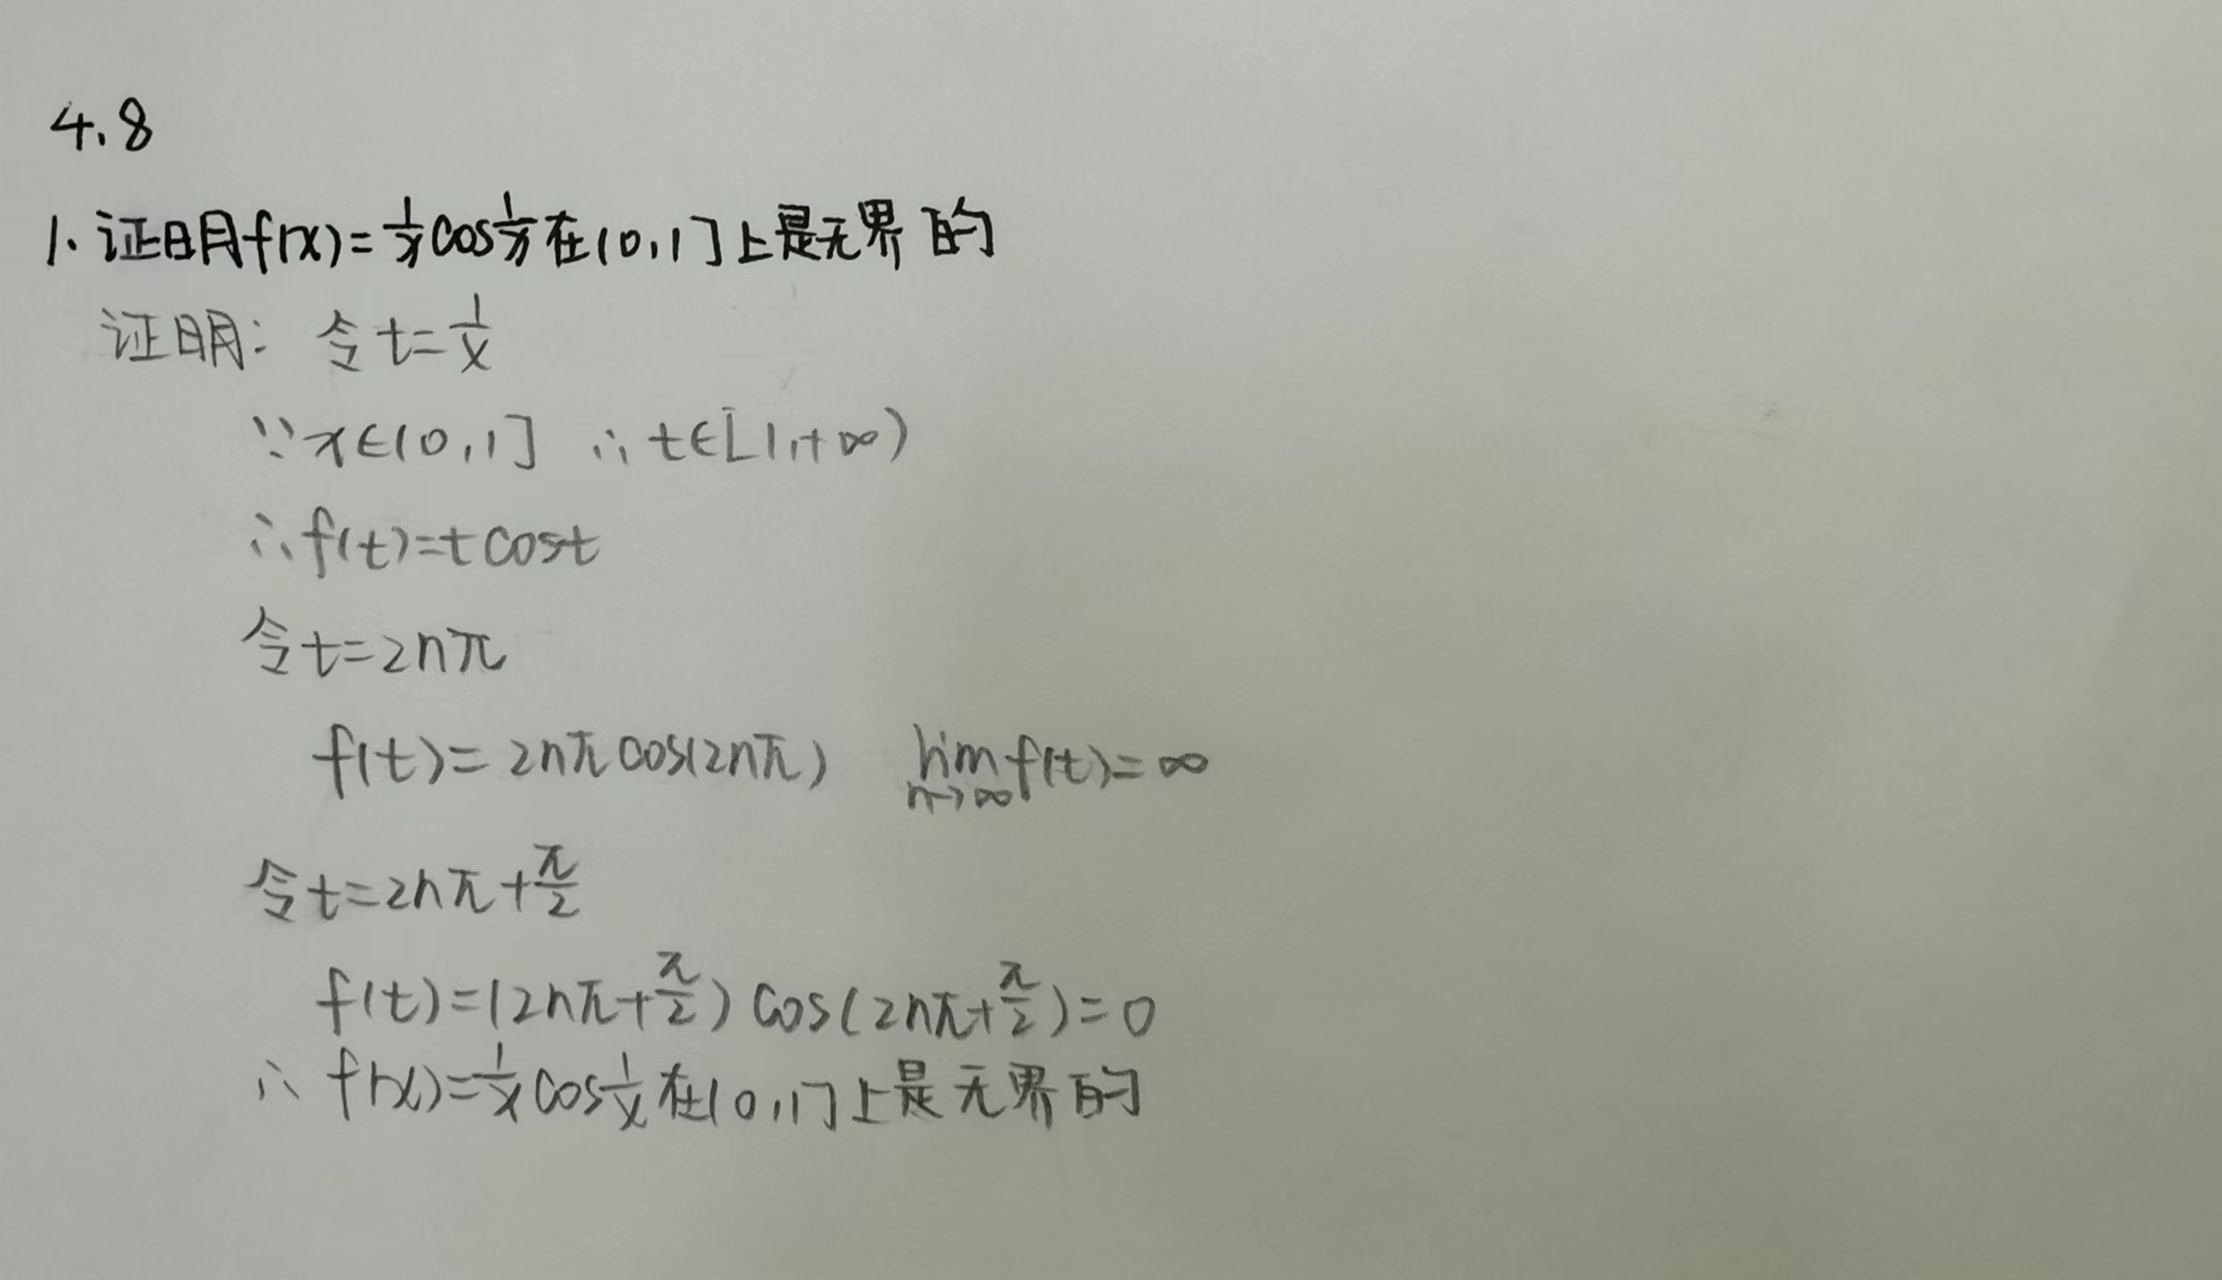 4.8
1. 证明f(x)=1/x cos1/x在(0,1]上是无界的
证明: 令t=1/x
∵x∈(0,1] ∴t∈[1,+∞)
∴f(t)=tcost
令t=2nπ
f(t)=2nπcos(2nπ) lim n→∞ f(t)=∞
令t=2nπ+π/2
f(t)=(2nπ+π/2)cos(2nπ+π/2)=0
∴f(x)=1/x cos1/x在(0,1]上是无界的